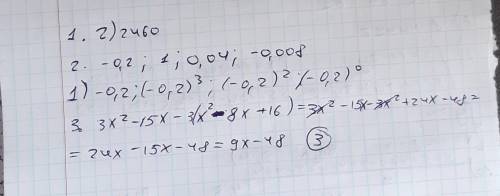 1. 2) 2460
2. -0,2 ; 1 ; 0,04 ; -0,008
1) -0,2 ; (-0,2)³ ; (-0,2)² ; (-0,2)⁰
3. 3x² - 15x - 3(x² - 8x + 16) = 3x² - 15x - 3x² + 24x - 48 =
= 24x - 15x - 48 = 9x - 48 3